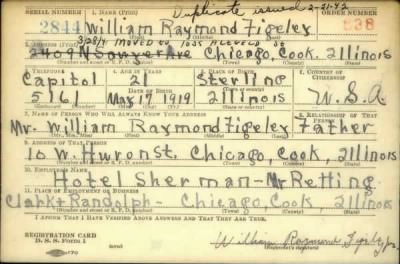 Duplicate issued 2-21-42
SERIAL NUMBER 1. NAME ORDER NUMBER
2844 William Raymond Figeley 838
3/28/41 MOVED TO 1035
2409 N Sawyer Ave Chicago, Cook, Illinois
3. TELEPHONE 4. AGE IN YEARS 5. PLACE OF BIRTH 6. COUNTRY OF CITIZENSHIP
Capitol 21 Sterling
DATE OF BIRTH
5961 May 17 1919 Illinois U.S.A
7. NAME OF PERSON WHO WILL ALWAYS KNOW YOUR ADDRESS 8. RELATIONSHIP OF THAT PERSON
Mr. William Raymond Figeley Father
9. ADDRESS OF THAT PERSON
10 W. Huron St. Chicago, Cook, Illinois
10. EMPLOYER'S NAME
Hotel Sherman - Mr Retting
11. PLACE OF EMPLOYMENT OR BUSINESS
Clark + Randolph - Chicago, Cook Illinois
I AFFIRM THAT I HAVE VERIFIED ABOVE ANSWERS AND THAT THEY ARE TRUE.
REGISTRATION CARD
D. S. S. Form 1
William Raymond Figeley Jr.